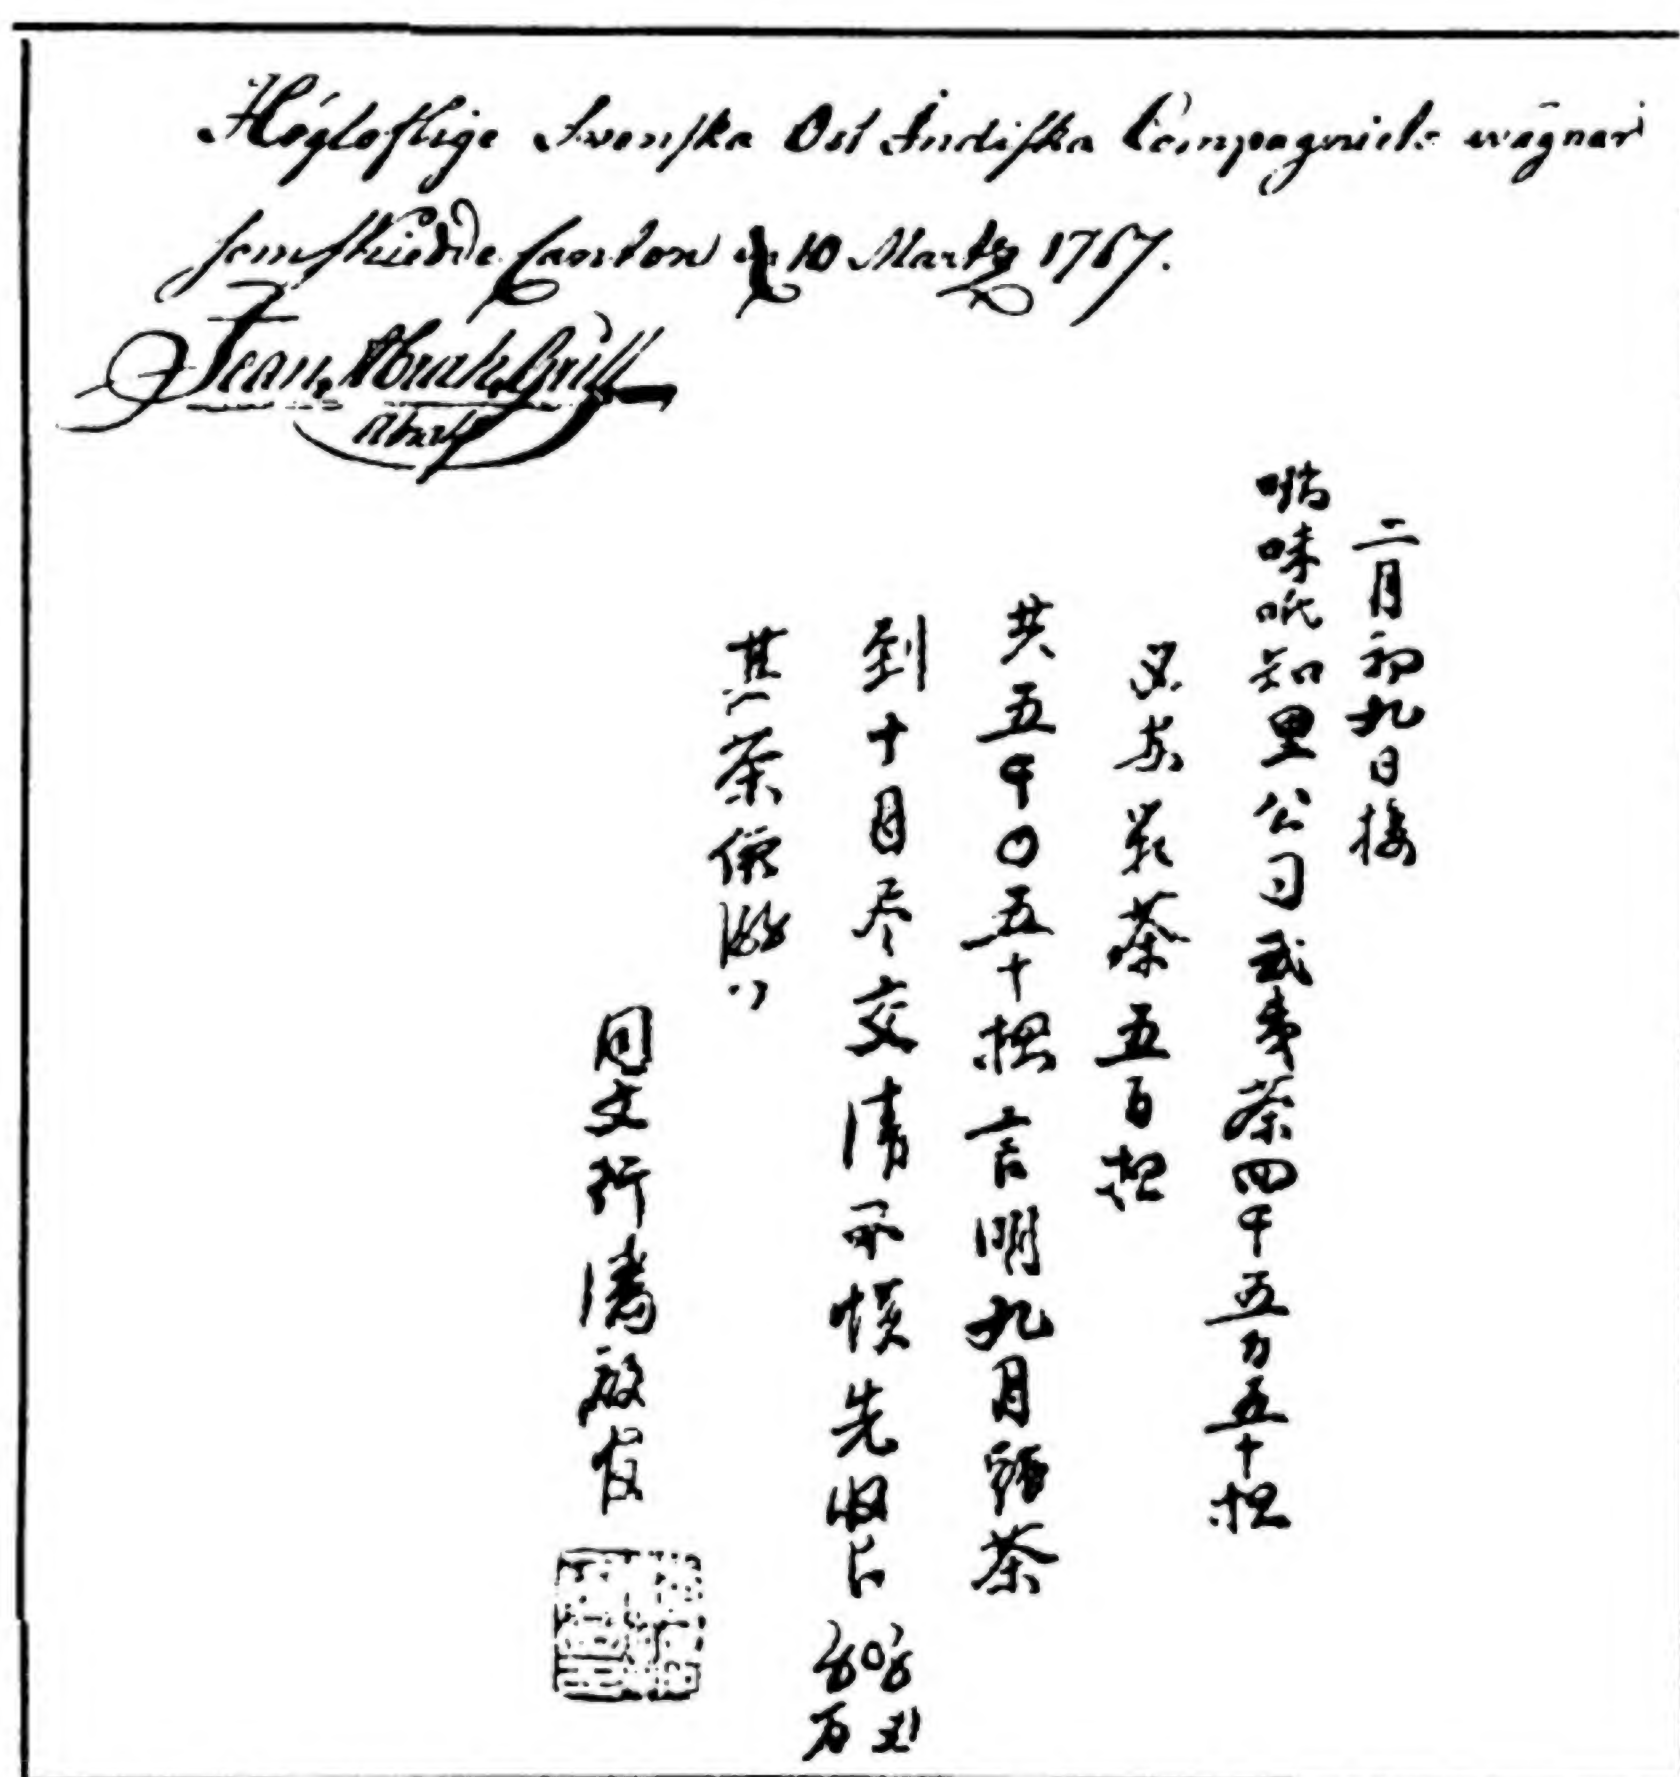 Högloflige Svenska Ost Indiska Compagniets wägnar
som skiedde Canton 10 Marty 1767.
Jean Abrah Grill
Abrah
二月初九日接
味呧知里公司武夷茶四千五百五十担
茶五百担
共五千〇五十担言明九月頭茶
到十月尽交清不悞先收艮
其茶價
同文行潘啟官